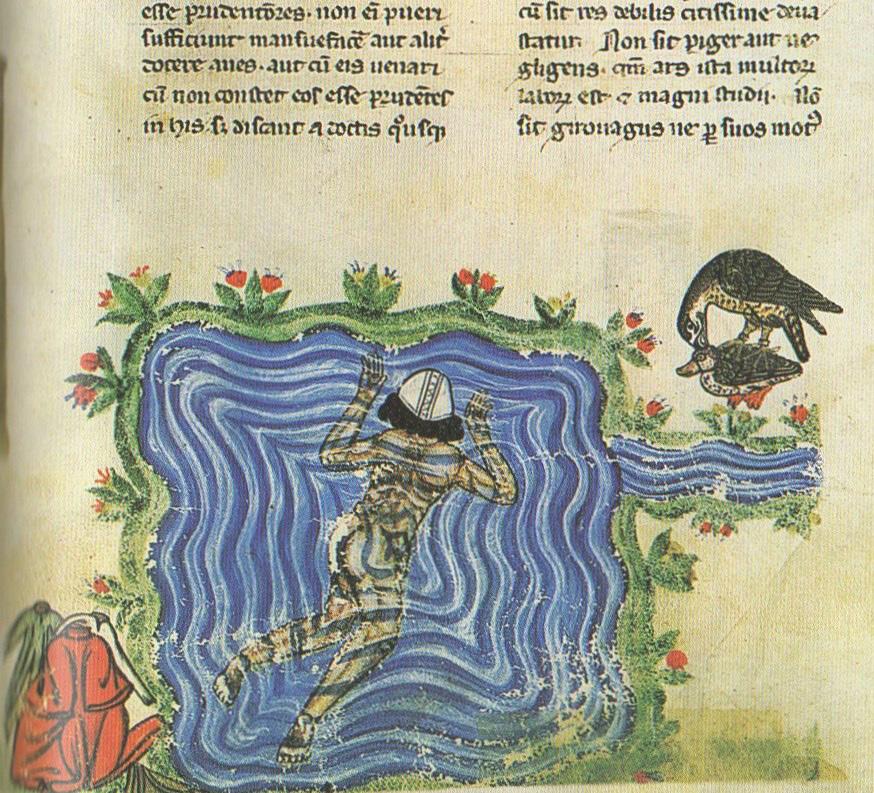 esse prudentōres. non ei̅ pueri
sufficiunt mansuefac̄e aut alit̄
docere aues. aut cū eis uenari
cū non constet eos esse prudētes
in his. s; discant a doctis
cū sit res debilis citissime deua
statur. Non sit piger aut ne
gligens. qm̄ ars ista multoꝝ
laboꝝ est ⁊ magni studii. Nō
sit girouagus ne ꝑ suos motꝰ